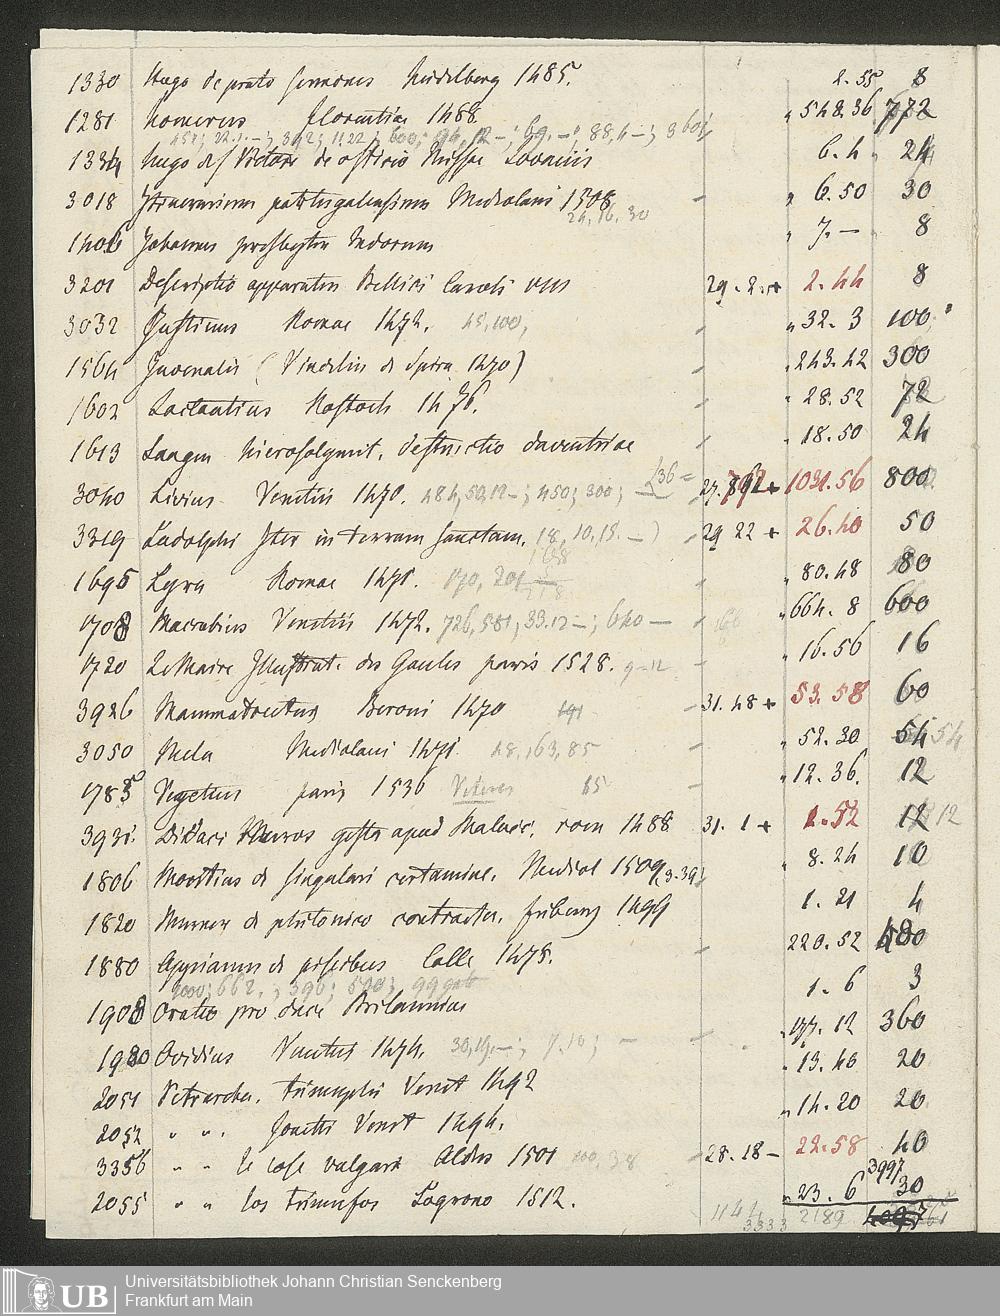 1330 Hugo de prato sermones Heidelberg 1485. 2.55 8
1281 Homerus Florentiae 1488 548.36 772
1334 Hugo de S Victore de officio Missae Lovanii 6.4 24
3018 Itinerarium portugalensium Mediolani 1508 6.50 30
24, 16, 30
1406 Johannes presbyter Indorum 7.— 8
3201 Descriptio apparatus Bellici Caroli VIII 29.2.+ 2.44 8
3032 Justinus Romae 1472. 45,100, 32.3 100
1564 Juvenalis (Vindelin de Spira 1470) 243.42 300
1602 Lactantius Rostock 1476. 28.52 72
1613 Langen Hierosolymit. destructio daventriae 18.50 24
3040 Livius Venetiis 1470. 484, 50,12—; 450; 300; 27. + 1031.56 800
3319 Ludolphi Iter in terram sanctam. 18, 10, 15.—) 29 22 + 26.40 50
1695 Lyra Romae 1471. 170, 201 80.48 80
1708 Macrobius Venetiis 1472. 726, 581, 33.12—; 640— 664.8 600
1720 LeMaire Illustrat. des Gaules paris 1528. 9-12 16.56 16
3926 Mammotrectus Beronis 1470 191 31.48 + 53.58 60
3050 Mela Mediolani 1471 48, 163, 85 52.30 54
1785 Vegetius paris 1536 Veteres 15 12.36. 12
3931. Didaci Muros gesta apud Malac. rom 1488 31.1 + 2.52 12
1806 Moritius de singulari certamine. Mediol 1509 8.24 10
1820 Murner de phitonico contractu. friburg 1499 1.21 4
1880 Oppianus de piscibus Colle 1478. 220.52 480
1908 Oratio pro duce Britanniae 1.6 3
1980 Ovidius Venetiis 1474. 30,19.—; 7.10; — 177.12 360
2051 Petrarcha. Triumphi Venet 1492 13.40 20
2052 " " . Sonetti Venet 1494. 14.20 20
3356 " " le cose vulgari Aldus 1501 100, 38 28.18— 22.58 40
2055 " " los triumfos Logrono 1512. 23.6 30
3997
1144 3333 2189
UB Universitätsbibliothek Johann Christian Senckenberg
Frankfurt am Main